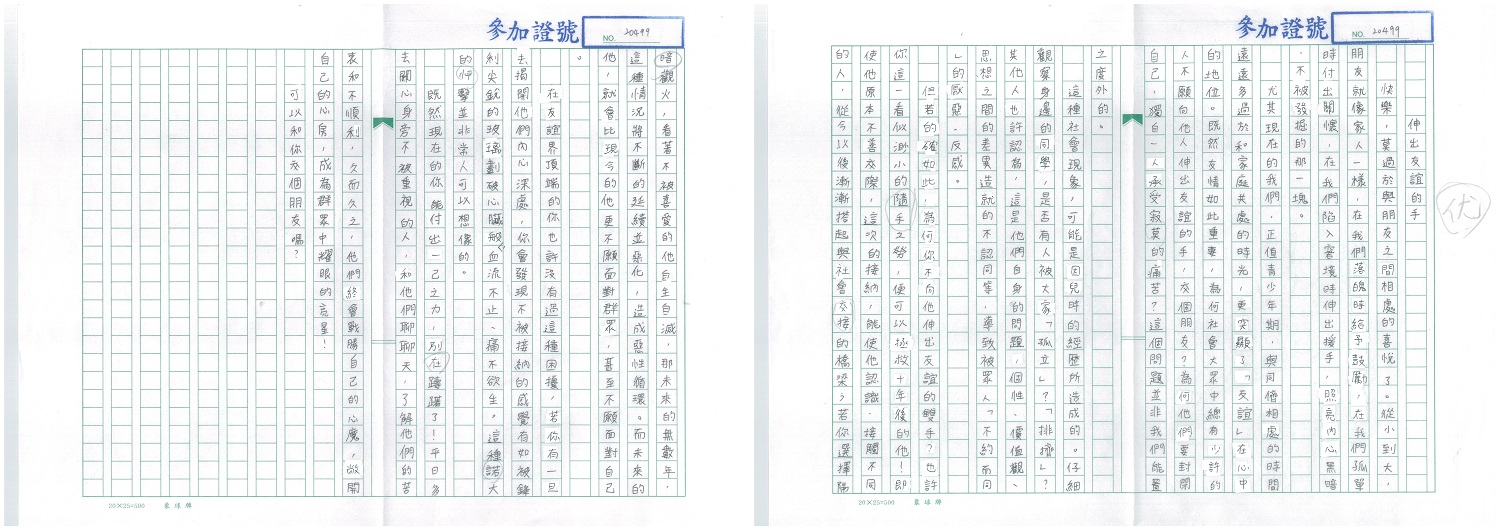 參加證號
NO. 20499
伸出友誼的手
快樂，莫過於與朋友之間相處的喜悅了。從小到大，
朋友就像家人一樣，在我們落魄時給予鼓勵，在我們孤單
時付出關懷，在我們陷入窘境時伸出援手，照亮內心黑暗
、不被發掘的那一塊。
尤其現在的我們，正值青少年期，與同儕相處的時間
遠遠多過於和家庭共處的時光，更突顯了「友誼」在心中
的地位。既然友情如此重要，為何社會大眾中總有少許的
人不願向他人伸出友誼的手，交個朋友？為何他們要封閉
自己，獨自一人承受寂莫的痛苦？這個問題並非我們能置
之度外的。
這種社會現象，可能是因兒時的經歷所造成的。仔細
觀察身邊的同學，是否有人被大家「孤立」？「排擠」？
其他人也許認為，這是他們自身的問題，個性、價值觀、
思想之間的差異造就的不認同等，導致被眾人「不約而同
」的厭惡、反感。
但若的確如此，為何你不向他伸出友誼的雙手？也許
你這一看似渺小的隨手之勞，便可以拯救十年後的他！即
使他原本不善交際，這次的接納，能使他認識、接觸不同
的人，從今以後漸漸搭起與社會交接的橋梁；若你選擇隔
20×25=500 象球牌
优
參加證號
NO. 20499
暗觀火，看著不被喜愛的他自生自滅，那未來的無數年，
這種情況將不斷的延續並惡化，造成惡性循環。而未來的
他，就會比現今的他更不願面對群眾，甚至不願面對自己
。
在友誼界頂端的你也許沒有過這種困擾，若你有一旦
去揭開他們內心深處，你會發現不被接納的感覺有如被鋒
利尖銳的玻璃劃破心臟般血流不止、痛不欲生。這種諾大
的忡擊並非常人可以想像的。
既然現在的你能付出一己之力，別在躊躇了！平日多
去關心身旁不被重視的人，和他們聊聊天，了解他們的苦
衷和不順利，久而久之，他們終會戰勝自己的心魔，敞開
自己的心房，成為群眾中耀眼的亮星！
可以和你交個朋友嗎？
20×25=500 象球牌